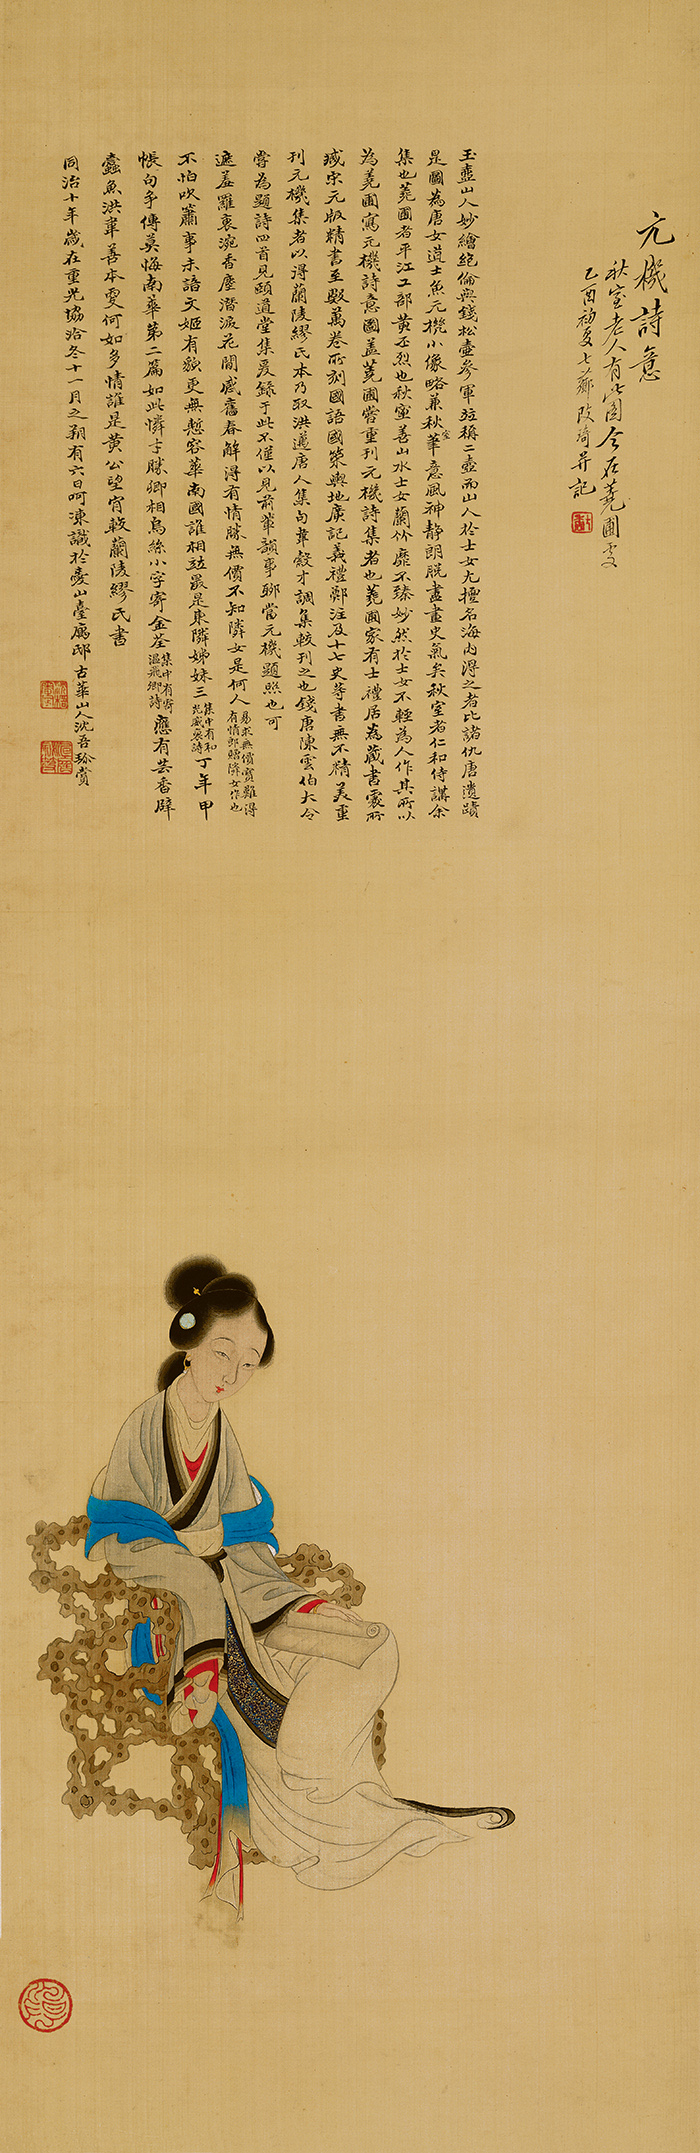 元機詩意
秋室老人有此圖今在蕘圃處
乙酉初夏七薌改琦并記
玉壺山人妙繪絕倫與錢松壺參軍竝稱二壺而山人於士女尤擅名海內得之者比諸仇唐遺蹟
是圖為唐女道士魚元機小像略兼秋室華意風神靜朗脫盡畫史氣矣秋室者仁和侍講余
集也蕘圃者平江工部黃丕烈也秋室善山水士女蘭竹靡不臻妙然於士女不輕為人作其所以
為蕘圃寫元機詩意圖蓋蕘圃嘗重刊元機詩集者也蕘圃家有士禮居為藏書處所
臧宋元版精書至數萬卷所刻國語國策輿地廣記義禮鄭注及十七史等書無不精美重
刊元機集者以得蘭陵繆氏本乃取洪邁唐人集句韋縠才調集較刊之也錢唐陳雲伯大令
嘗為題詩四首見頤道堂集爰錄于此不僅以見前輩韻事聊當元機題照也可
遮羞羅裹浣香塵潛淚花間感舊春解得有情勝無價不知隣女是何人易求無價寶難得有情郎贈隣女作也
不怕吹簫事未諧文姬有貌更無慙容華南國誰相竝最是東隣姊妹三集中有和光威裒詩丁年甲
帳句手傳莫悔南華第二篇如此憐才勝卿相烏絲小字寄金荃集中有寄溫飛卿詩應有芸香辟
蠹魚洪韋善本更何如多情誰是黃公望宵較蘭陵繆氏書
同治十年歲在重光協洽冬十一月之朔有六日呵凍識於憂山臺廨邸古華山人沈吾珍賞